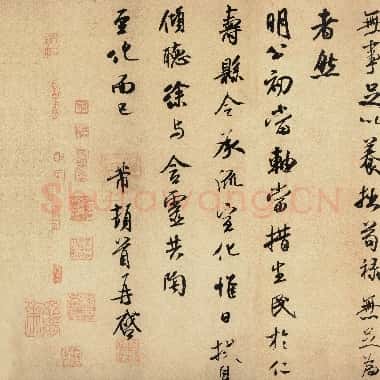 無事足以養拙苟祿無足為
者然
明公初當軸當措生民於仁
壽縣令承流宣化惟日拱自
傾聽徐與含靈共陶
至化而已
芾頓首再啓
Shufawang.CN